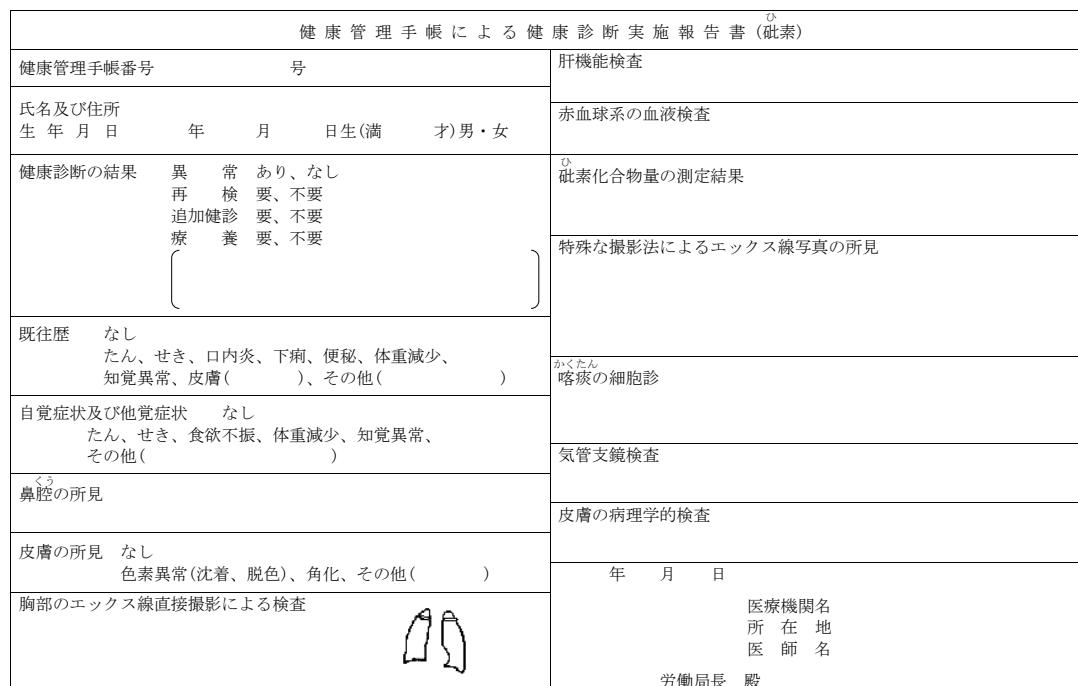 健康管理手帳による健康診断実施報告書(砒素)
ひ
健康管理手帳番号　　　　　　　　号
氏名及び住所
生年月日　　　　年　　　月　　　日生(満　　　才)男・女
健康診断の結果　　異　　常　あり、なし
再　　検　要、不要
追加健診　要、不要
療　　養　要、不要
既往歴　　なし
たん、せき、口内炎、下痢、便秘、体重減少、
知覚異常、皮膚(　　　　)、その他(　　　　　　　)
自覚症状及び他覚症状　　なし
たん、せき、食欲不振、体重減少、知覚異常、
その他(　　　　　　　　　　　)
くう
鼻腔の所見
皮膚の所見　なし
色素異常(沈着、脱色)、角化、その他(　　　　)
胸部のエックス線直接撮影による検査
肝機能検査
赤血球系の血液検査
ひ
砒素化合物量の測定結果
特殊な撮影法によるエックス線写真の所見
かくたん
喀痰の細胞診
気管支鏡検査
皮膚の病理学的検査
年　　月　　日
医療機関名
所　在　地
医　師　名
労働局長　殿